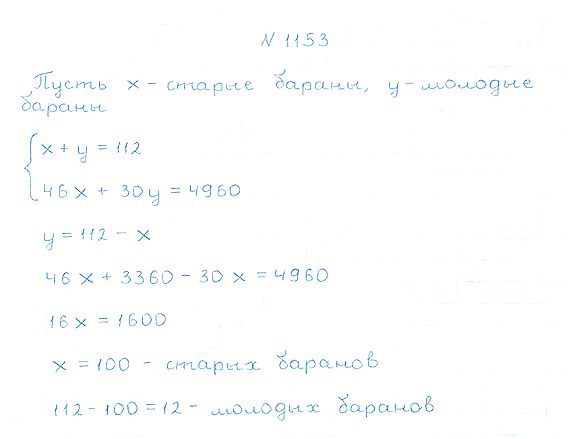 N 1153
Пусть x - старые бараны, y - молодые
бараны
x + y = 112
46x + 30y = 4960
y = 112 - x
46x + 3360 - 30x = 4960
16x = 1600
x = 100 - старых баранов
112 - 100 = 12 - молодых баранов